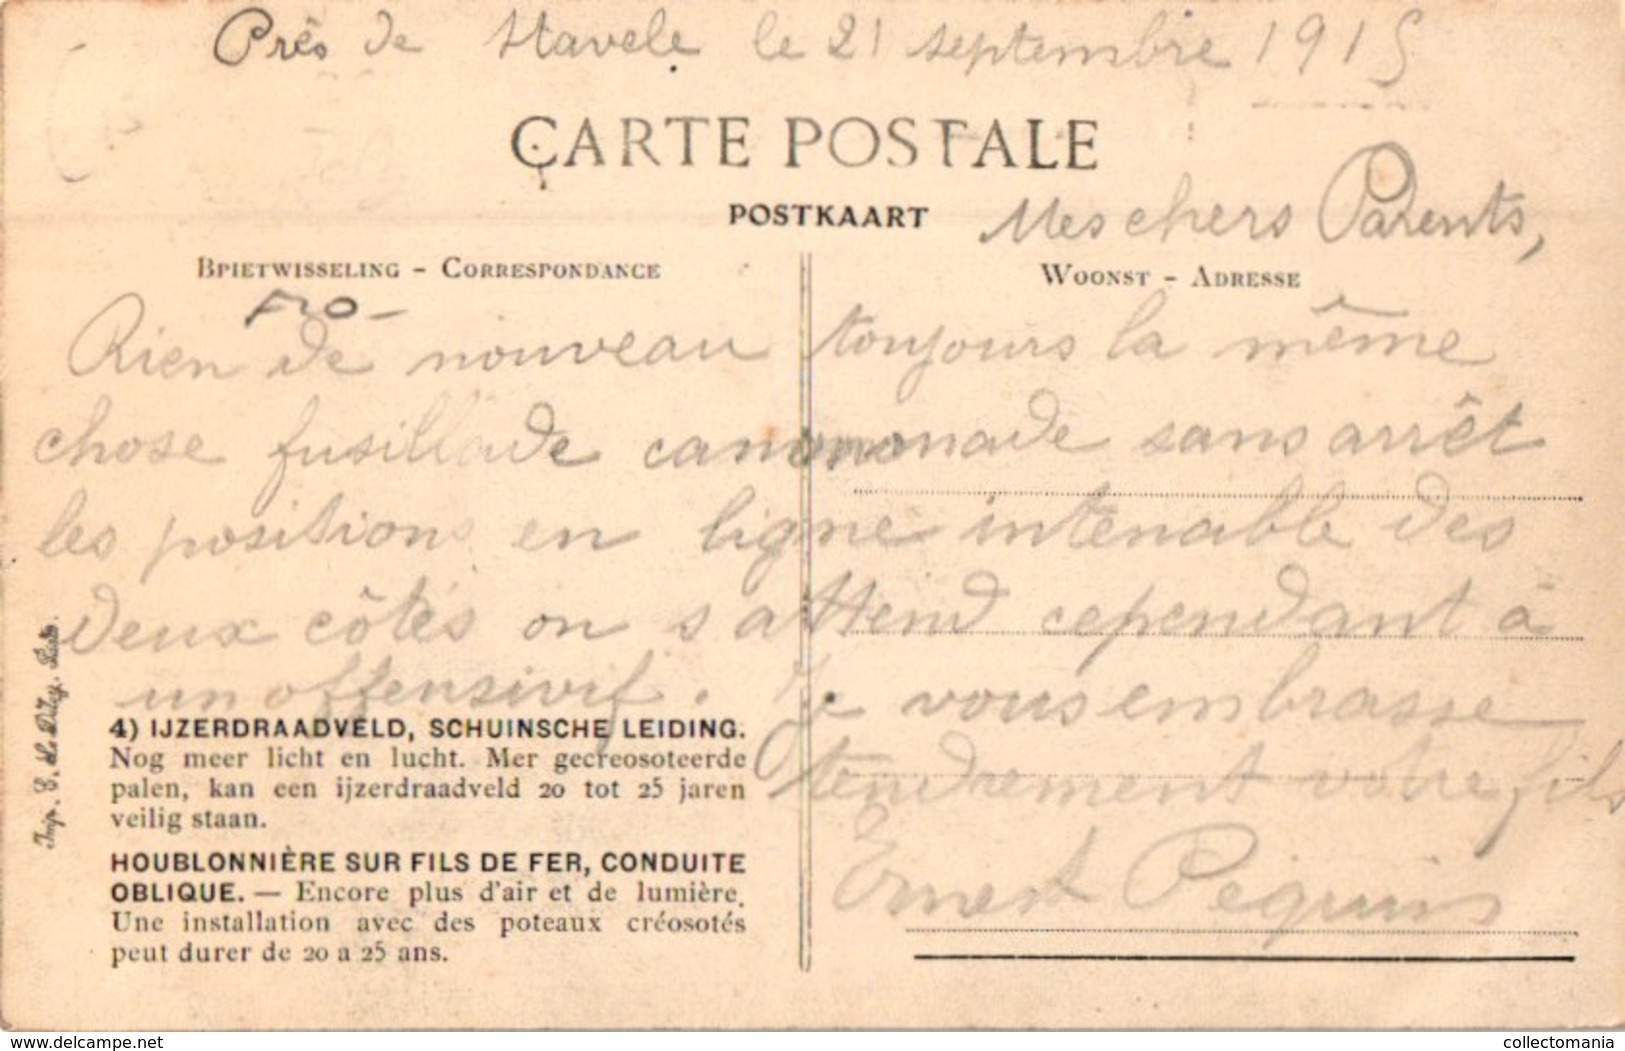 Près de Stavele le 21 septembre 1915
CARTE POSTALE
POSTKAART
Mes chers Parents,
BPIETWISSELING - CORRESPONDANCE
WOONST - ADRESSE
Rien de nouveau toujours la même
chose fusillade cannonnade sans arrêt
les positions en ligne intenable des
deux côtés on s'attend cependant à
un offensivif. Je vous embrasse
tendrement votre fils
Ernest Pequin
4) IJZERDRAADVELD, SCHUINSCHE LEIDING.
Nog meer licht en lucht. Mer gecreosoteerde
palen, kan een ijzerdraadveld 20 tot 25 jaren
veilig staan.
HOUBLONNIÈRE SUR FILS DE FER, CONDUITE
OBLIQUE. — Encore plus d'air et de lumière.
Une installation avec des poteaux créosotés
peut durer de 20 a 25 ans.
https://www.delcampe.net
collectomania